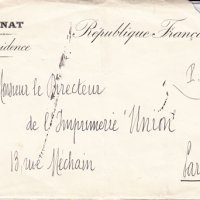 NAT République Franço
idence
P.
Monsieur le Directeur
de l'Imprimerie "Union"
13 rue Méchain
Par